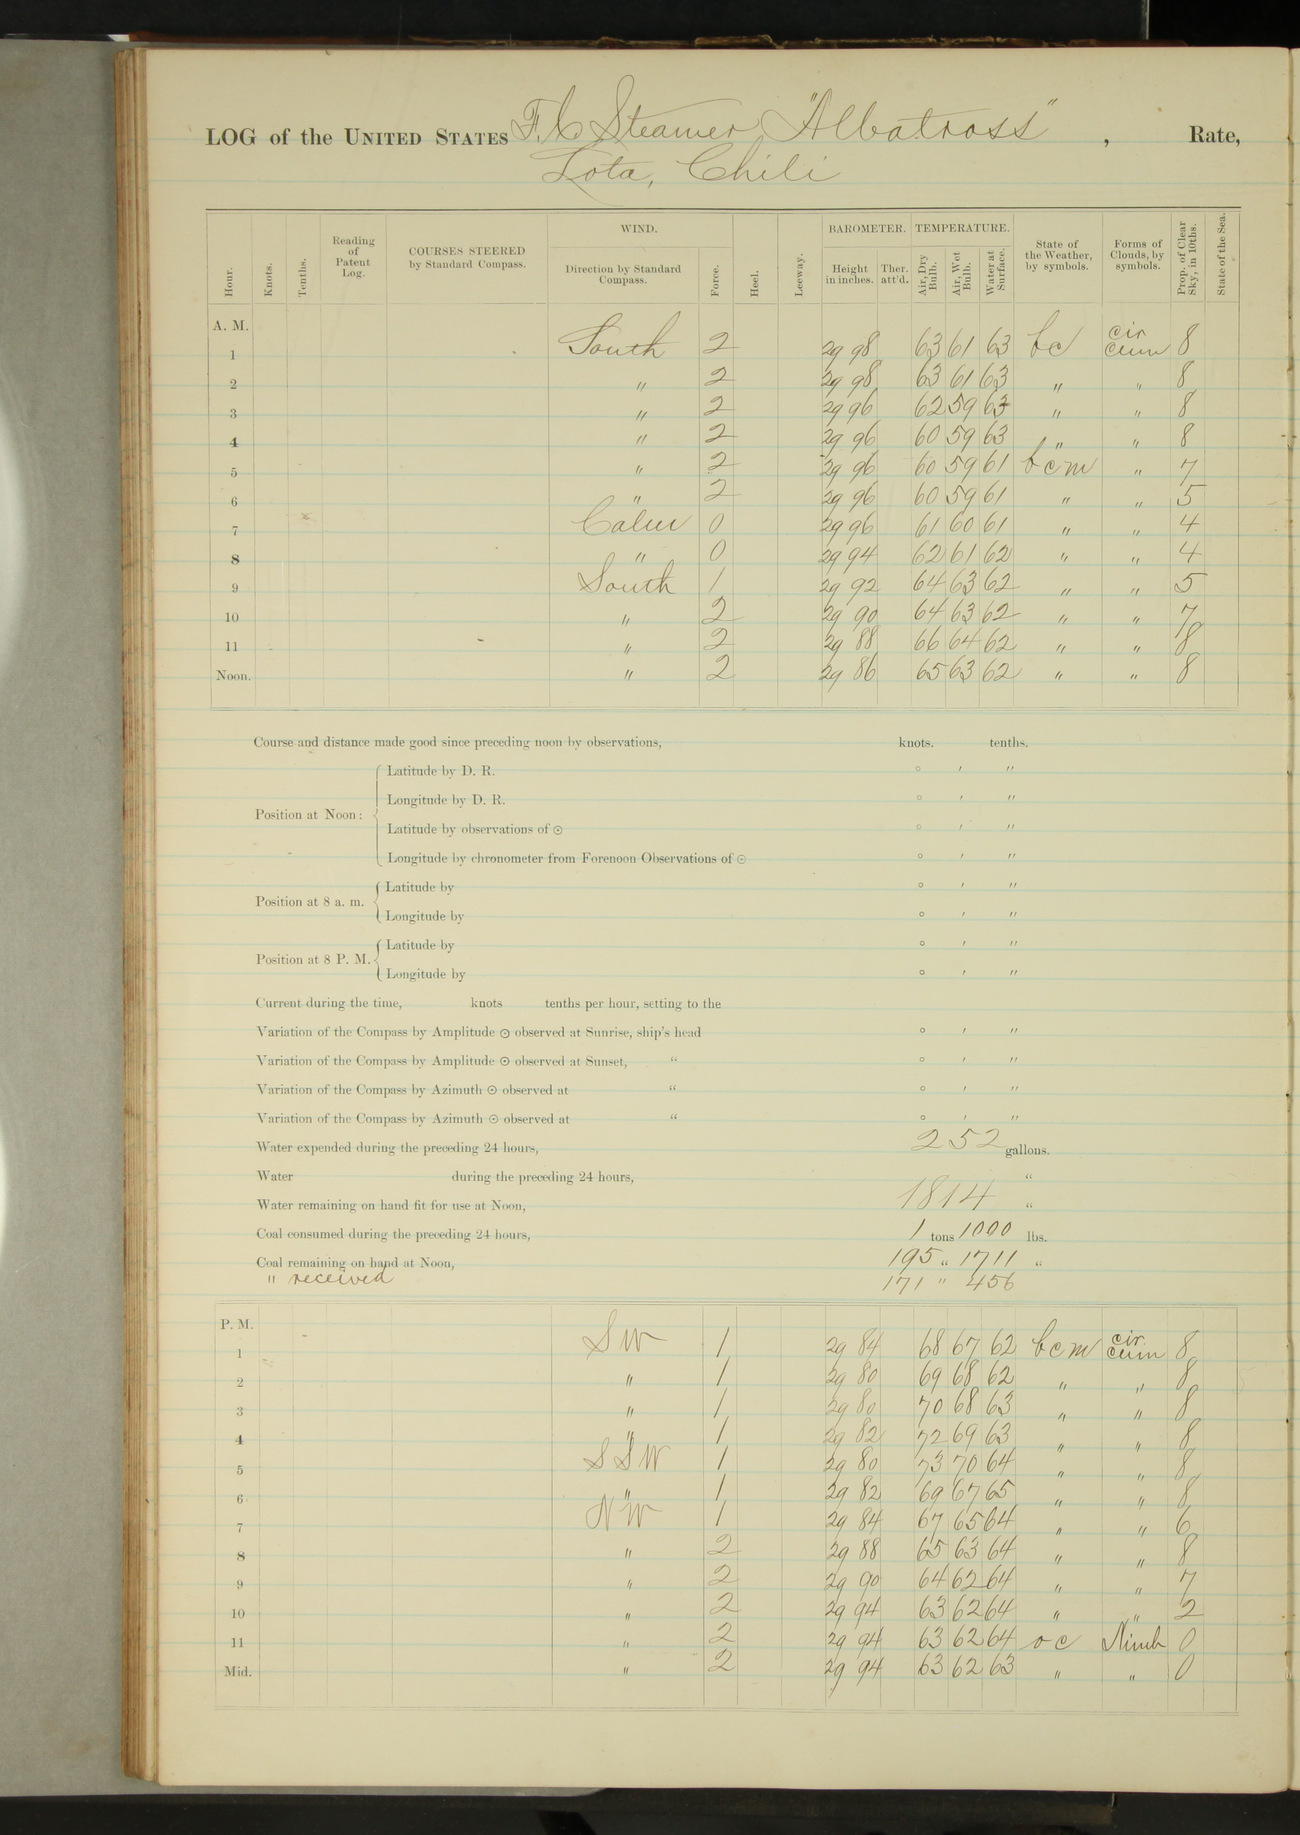 LOG of the UNITED STATES F. C. Steamer "Albatross" , Rate,
Lota, Chili
Hour. Knots. Tenths. Reading of Patent Log. COURSES STEERED by Standard Compass. WIND. Direction by Standard Compass. Force. Heel. Leeway. BAROMETER. Height in inches. Ther. att'd. TEMPERATURE. Air, Dry Bulb. Air, Wet Bulb. Water at Surface. State of the Weather, by symbols. Forms of Clouds, by symbols. Prop. of Clear Sky, in 10ths. State of the Sea.
A. M.
1 South 2 29 98 63 61 63 bc cir cum 8
2 " 2 29 98 63 61 63 " " 8
3 " 2 29 96 62 59 63 " " 8
4 " 2 29 96 60 59 63 " " 8
5 " 2 29 96 60 59 61 bcm " 7
6 " 2 29 96 60 59 61 " " 5
7 Calm 0 29 96 61 60 61 " " 4
8 " 0 29 94 62 61 62 " " 4
9 South 1 29 92 64 63 62 " " 5
10 " 2 29 90 64 63 62 " " 7
11 " 2 29 88 66 64 62 " " 8
Noon. " 2 29 86 65 63 62 " " 8
Course and distance made good since preceding noon by observations, knots. tenths.
Position at Noon:
Latitude by D. R. ° ′ ″
Longitude by D. R. ° ′ ″
Latitude by observations of ☉ ° ′ ″
Longitude by chronometer from Forenoon Observations of ☉ ° ′ ″
Position at 8 a. m.
Latitude by ° ′ ″
Longitude by ° ′ ″
Position at 8 P. M.
Latitude by ° ′ ″
Longitude by ° ′ ″
Current during the time, knots tenths per hour, setting to the
Variation of the Compass by Amplitude ☉ observed at Sunrise, ship's head ° ′ ″
Variation of the Compass by Amplitude ☉ observed at Sunset, " ° ′ ″
Variation of the Compass by Azimuth ☉ observed at " ° ′ ″
Variation of the Compass by Azimuth ☉ observed at " ° ′ ″
Water expended during the preceding 24 hours, 252 gallons.
Water during the preceding 24 hours, "
Water remaining on hand fit for use at Noon, 1814 "
Coal consumed during the preceding 24 hours, 1 tons 1000 lbs.
Coal remaining on hand at Noon, 195 " 1711 "
" received 171 " 456
P. M.
1 SW 1 29 84 68 67 62 bcm cir. cum 8
2 " 1 29 80 69 68 62 " " 8
3 " 1 29 80 70 68 63 " " 8
4 " 1 29 82 72 69 63 " " 8
5 SSW 1 29 80 73 70 64 " " 8
6 " 1 29 82 69 67 65 " " 8
7 NW 1 29 84 67 65 64 " " 6
8 " 2 29 88 65 63 64 " " 8
9 " 2 29 90 64 62 64 " " 7
10 " 2 29 94 63 62 64 " " 2
11 " 2 29 94 63 62 64 oc Nimb 0
Mid. " 2 29 94 63 62 63 " " 0